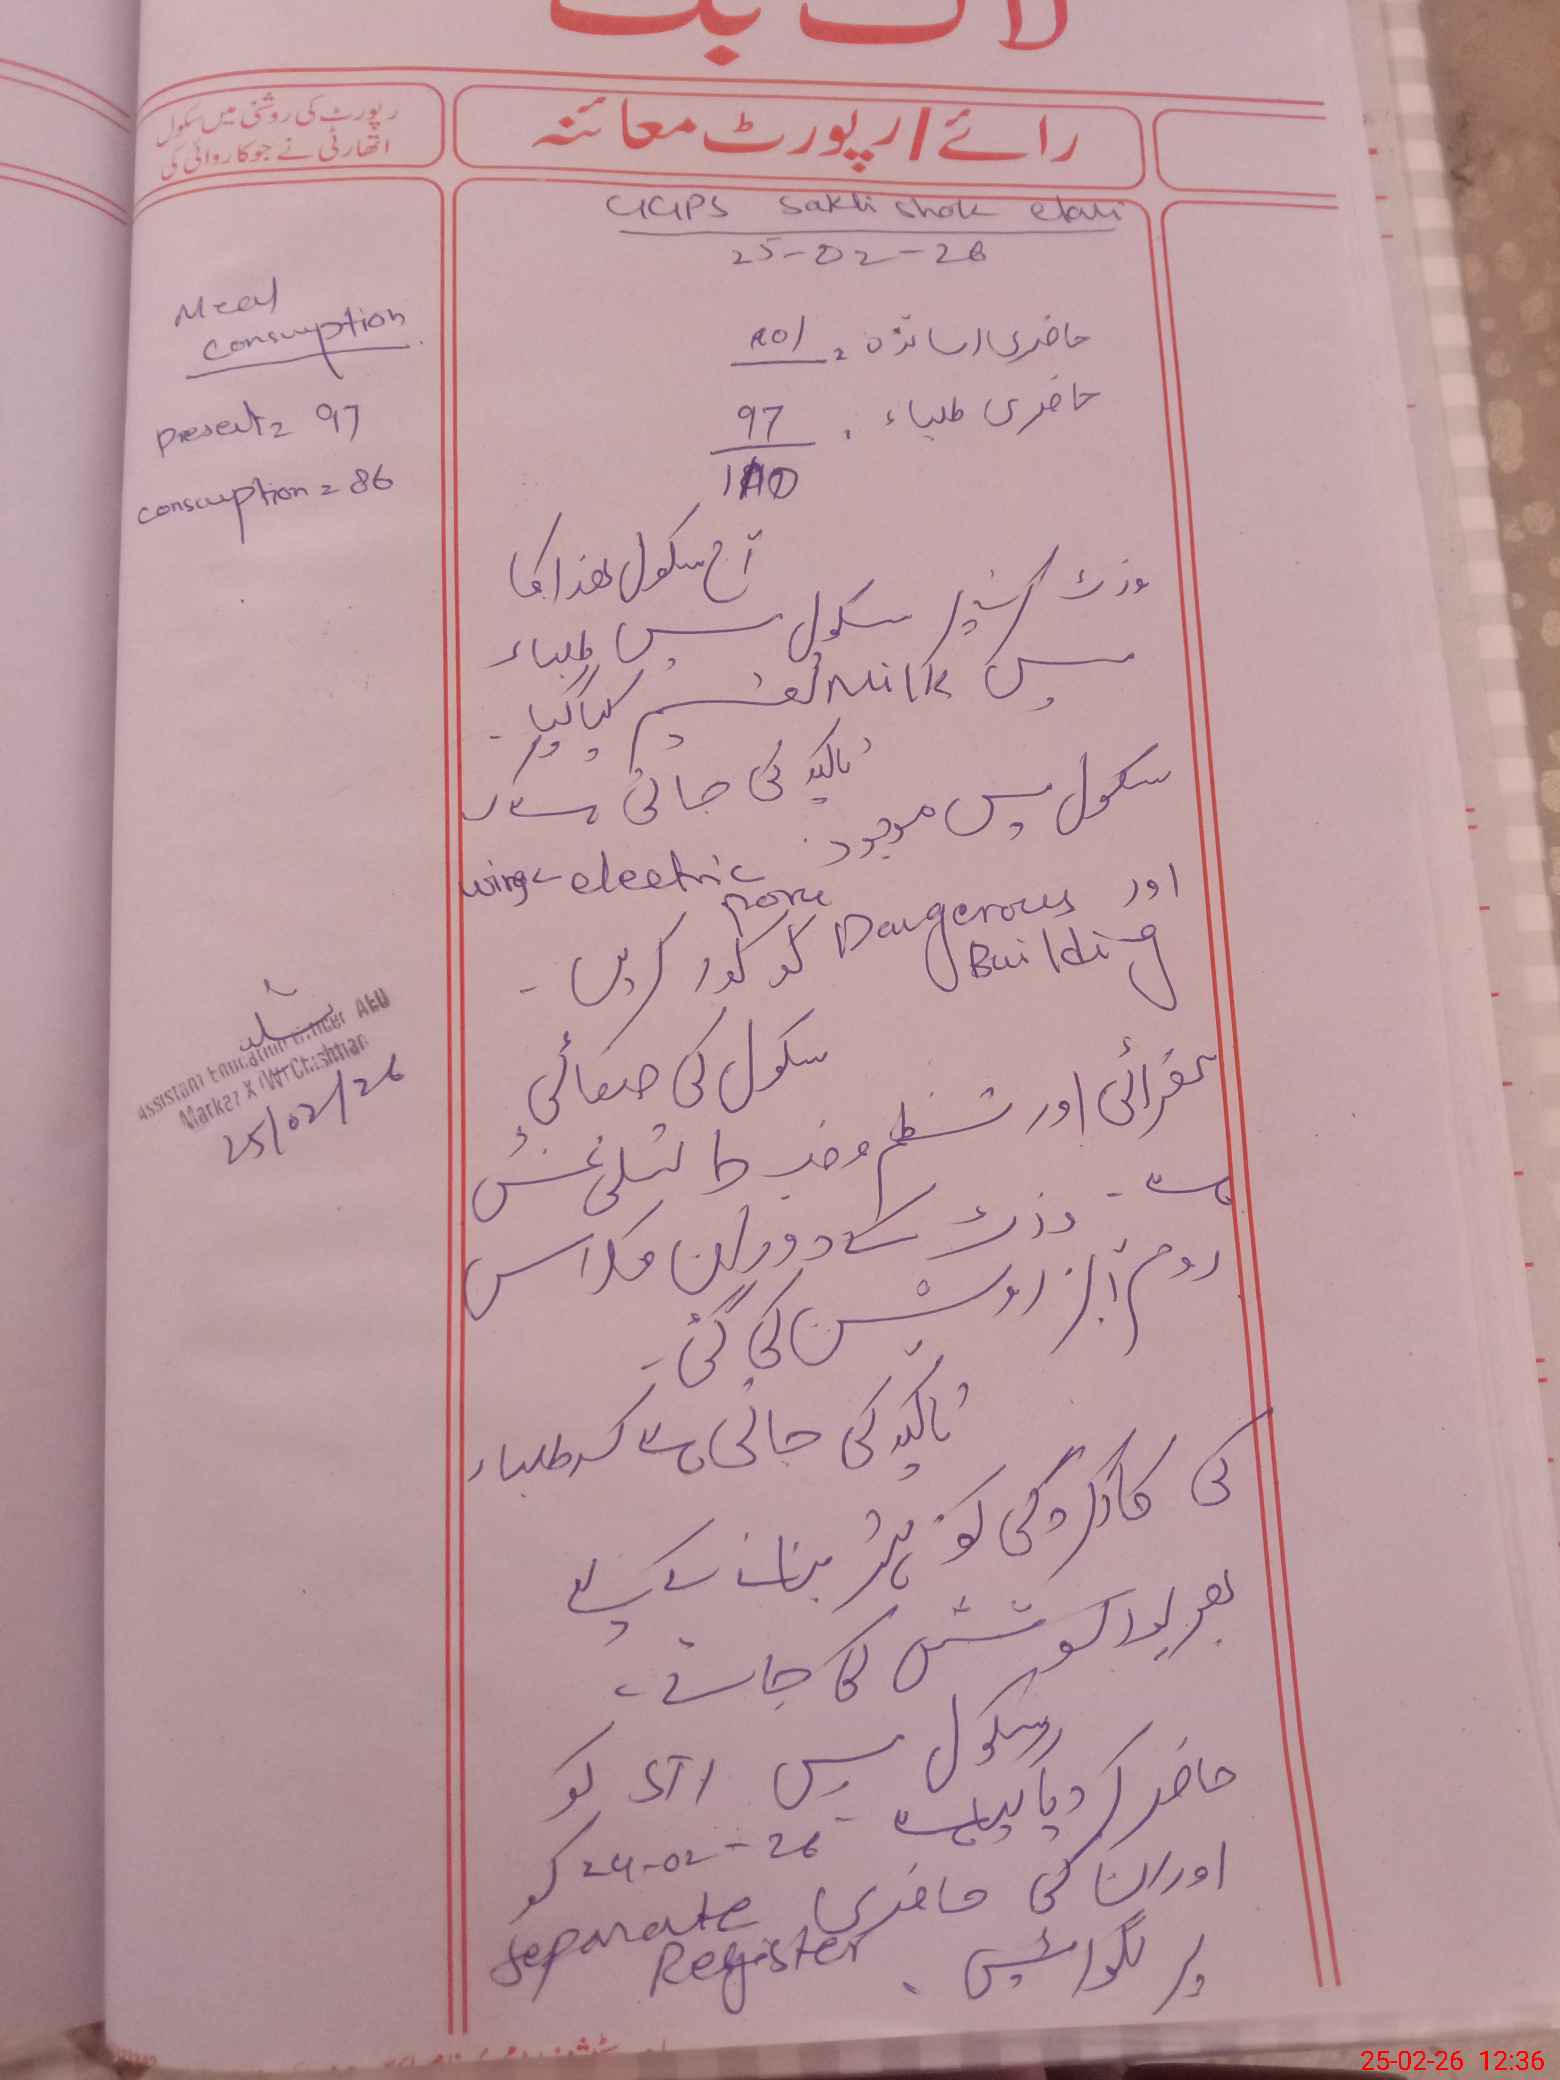 لاگ بک
رائے / رپورٹ معائنہ
رپورٹ کی روشنی میں سکول
اتھارٹی نے جو کاروائی کی
GGPS
25-02-26
حاضری اساتذہ =
حاضری طلباء . 97
Meal
consumption
present = 97
consumption = 86
آج سکول ھذا کا
وزٹ کیا سکول میں طلباء
میں Milk تقسیم کیا گیا ۔
تاکید کی جاتی ہے کہ
سکول میں موجود electric
اور Dangerous
Building کو کور کریں ۔
سکول کی صفائی
ستھرائی اور نظم و ضبط تسلی بخش
ہے ۔ وزٹ کے دوران کلاس
روم آبزرویشن کی گئی ۔
تاکید کی جاتی ہے کہ طلباء
کی کارکردگی کو بہتر بنانے کے لیے
بھرپور کوشش کی جائے ۔
سکول میں STI کو
حاضر کر دیا گیا ہے ۔ 24-02-26 کو
اور ان کی حاضری Separate
Register پر لگوائیں .
Assistant Education Officer AEO
Markaz X (W) Chishtian
25/02/26
25-02-26 12:36